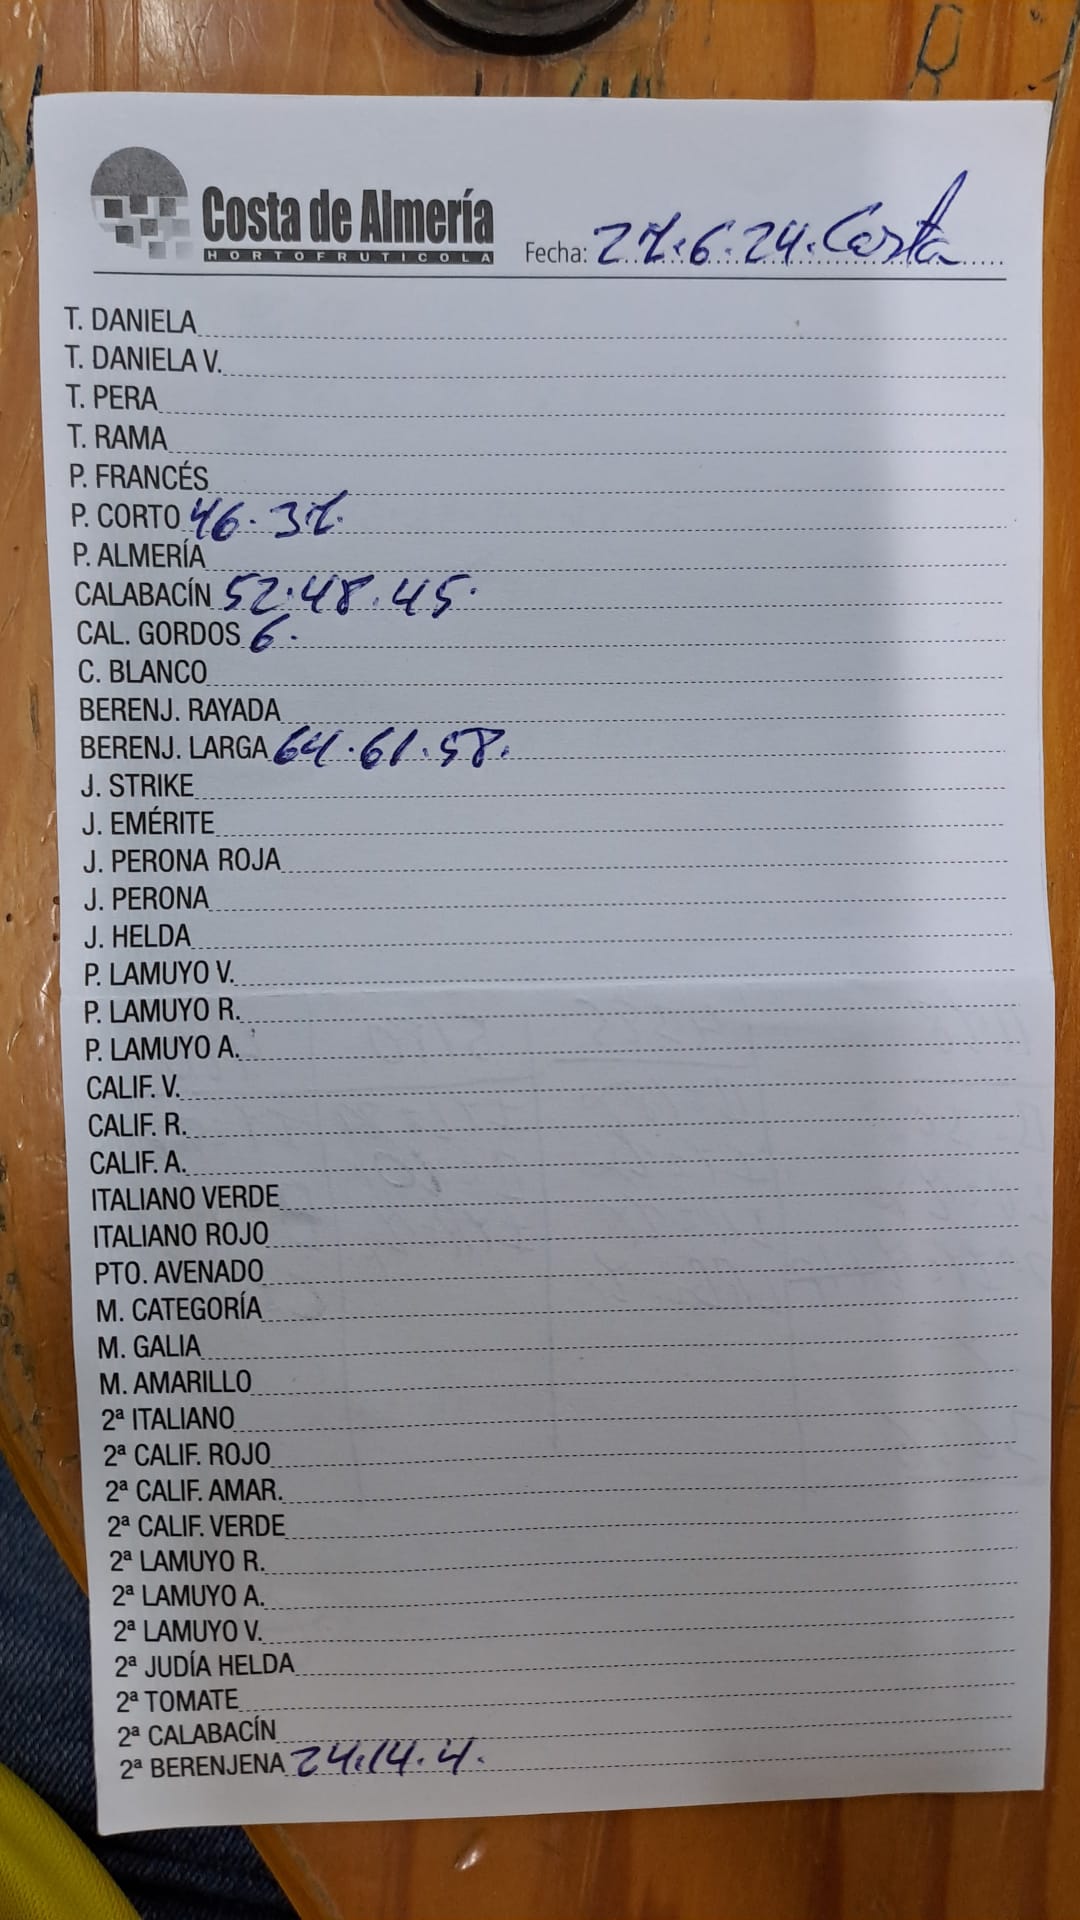 Costa de Almería
HORTOFRUTICOLA
Fecha: 27.6.24. Costa
T. DANIELA
T. DANIELA V.
T. PERA
T. RAMA
P. FRANCÉS
P. CORTO 46. 37.
P. ALMERÍA
CALABACÍN 52.48.45.
CAL. GORDOS 6.
C. BLANCO
BERENJ. RAYADA
BERENJ. LARGA 64.61.58.
J. STRIKE
J. EMÉRITE
J. PERONA ROJA
J. PERONA
J. HELDA
P. LAMUYO V.
P. LAMUYO R.
P. LAMUYO A.
CALIF. V.
CALIF. R.
CALIF. A.
ITALIANO VERDE
ITALIANO ROJO
PTO. AVENADO
M. CATEGORÍA
M. GALIA
M. AMARILLO
2ª ITALIANO
2ª CALIF. ROJO
2ª CALIF. AMAR.
2ª CALIF. VERDE
2ª LAMUYO R.
2ª LAMUYO A.
2ª LAMUYO V.
2ª JUDÍA HELDA
2ª TOMATE
2ª CALABACÍN
2ª BERENJENA 24.14.4.